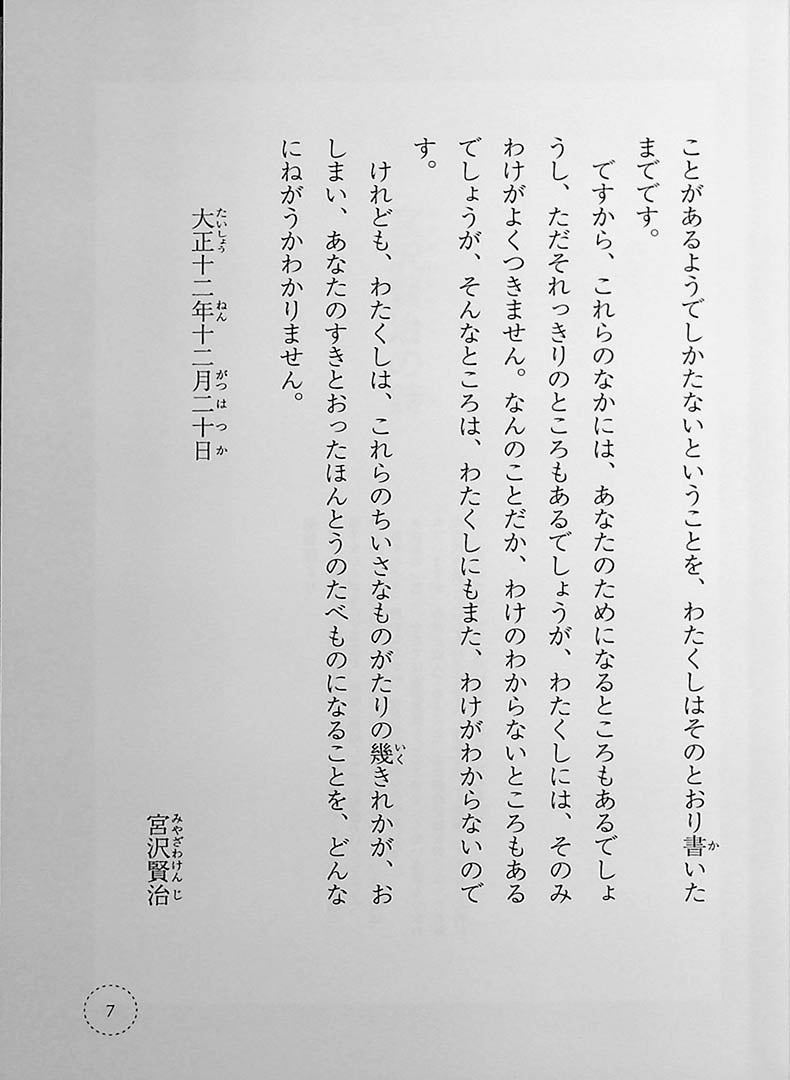 ことがあるようでしかたないということを、わたくしはそのとおり書いた
までです。
ですから、これらのなかには、あなたのためになるところもあるでしょ
うし、ただそれっきりのところもあるでしょうが、わたくしには、そのみ
わけがよくつきません。なんのことだか、わけのわからないところもある
でしょうが、そんなところは、わたくしにもまた、わけがわからないので
す。
けれども、わたくしは、これらのちいさなものがたりの幾きれかが、お
しまい、あなたのすきとおったほんとうのたべものになることを、どんな
にねがうかわかりません。
大正十二年十二月二十日
宮沢賢治
7